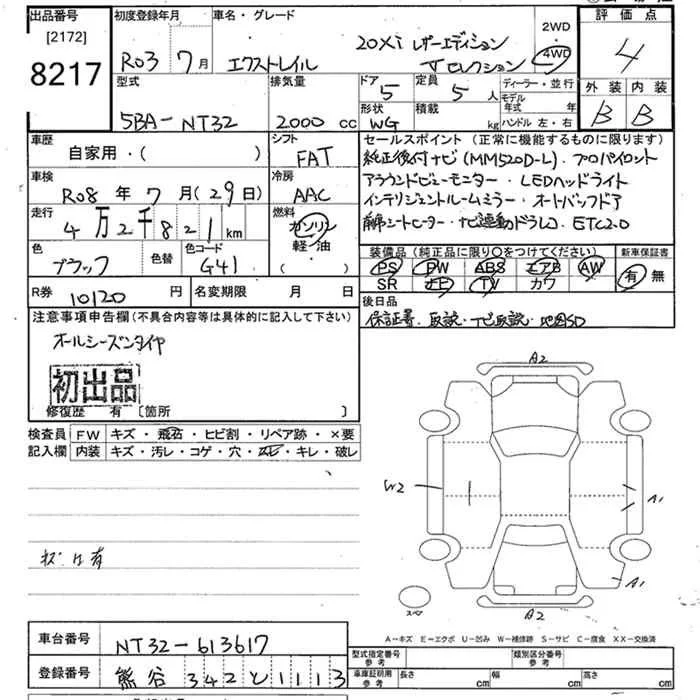 出品番号
[2172]
8217
初度登録年月
R03 7月
車名・グレード
エクストレイル
20Xi レザーエディション
Vセレクション
2WD
4WD
評価点
4
外装 内装
B B
型式
5BA-NT32
排気量
2000 cc
ドア
5
定員
5 人
形状
WG
積載
kg
ディーラー・並行
モデル年式 年
ハンドル 左・右
車歴
自家用・( )
シフト
FAT
車検
R08 年 7 月(29日)
冷房
AAC
走行
4万2千821km
燃料
ガソリン
軽・油
( )
色
ブラック
色替
色コード
G41
セールスポイント(正常に機能するものに限ります)
純正後付ナビ(MM520D-L)・プロパイロット
アラウンドビューモニター・LEDヘッドライト
インテリジェントルームミラー・オートバックドア
前席シートヒーター・ナビ連動ドラレコ ETC2.0
装備品(純正品に限り○をつけてください)
新車保証書
PS PW ABS エアB AW
SR ナビ TV カワ
有 無
R券 10120 円
名変期限 月 日
後日品
保証書、取説・ナビ取説・地図SD
注意事項申告欄(不具合内容等は具体的に記入して下さい)
オールシーズンタイヤ
初出品
修復歴 有 〔箇所 〕
検査員
記入欄
FW キズ・飛石・ヒビ割・リペア跡・×要
内装 キズ・汚レ・コゲ・穴・スレ・キレ・破レ
キズ凹有
A2
W2
A1
A1
A2
スペア
A-キズ E-エクボ U-凹み W-補修跡 S-サビ C-腐食 XX-交換済
車台番号
NT32-613617
登録番号
熊谷 342 と 1113
型式指定番号
参考
類別区分番号
参考
車庫証明用
参考
長さ cm 幅 cm 高さ cm